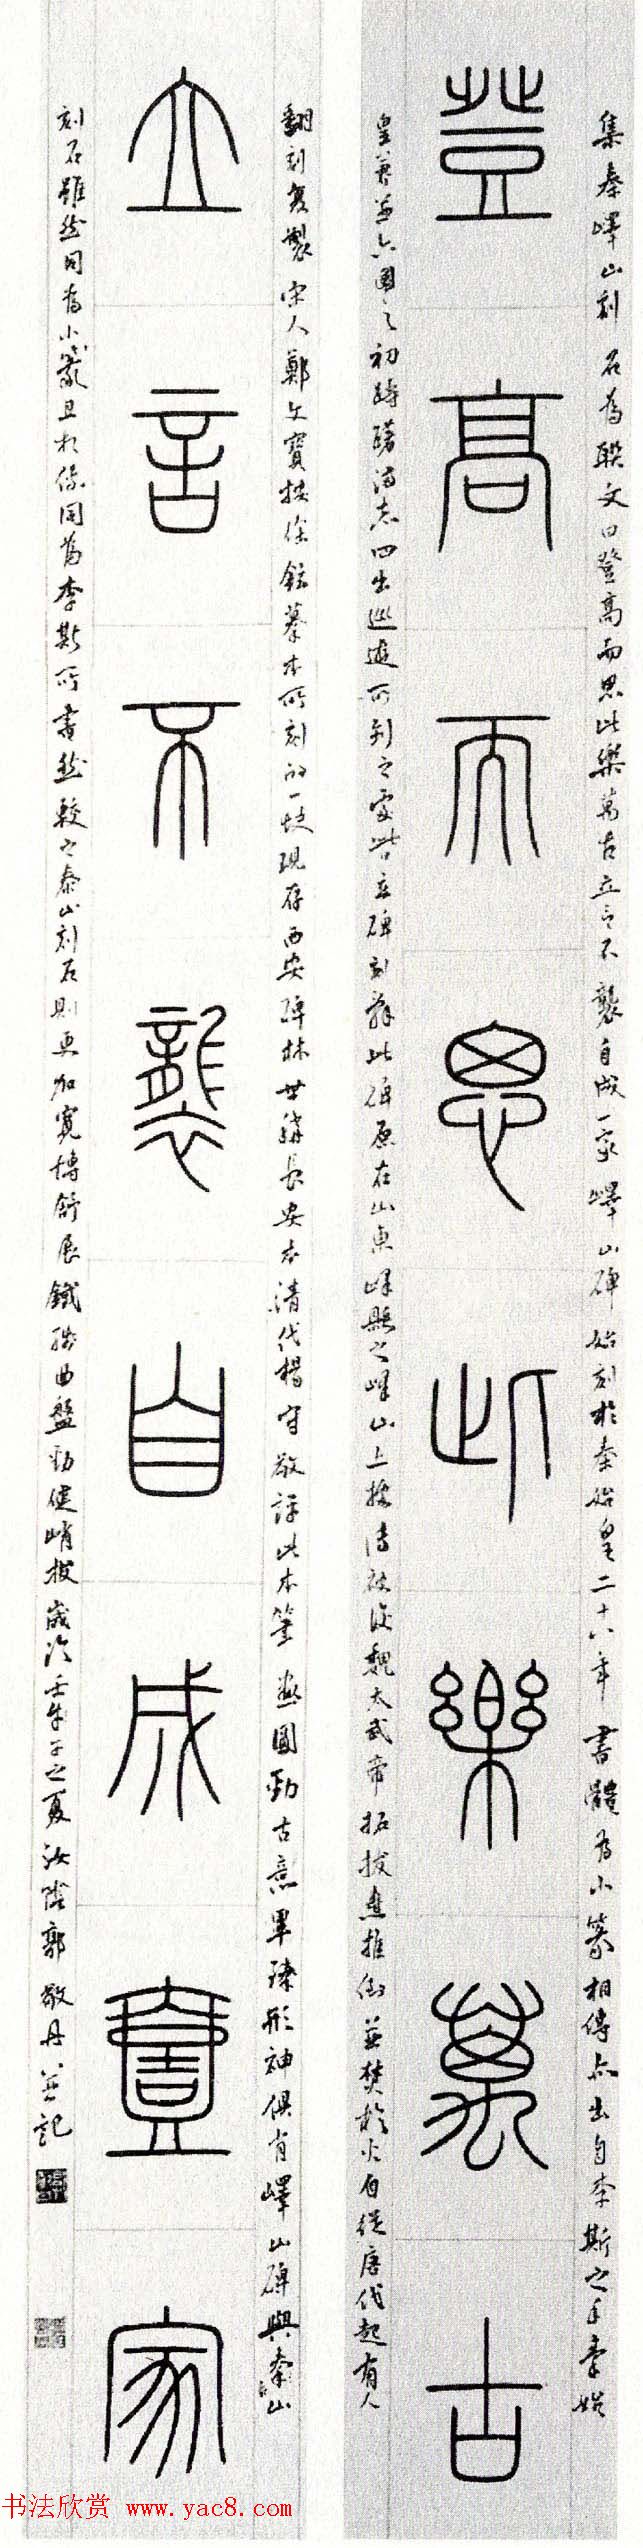 集秦嶧山刻石為聯文曰登高而思此樂萬古立言不襲自成一家嶧山碑始刻於秦始皇二十八年書體為小篆相傳亦出自李斯之手秦始
登高而思此樂萬古
皇兼並六國之初躊躇滿志四出巡遊所到之處皆立碑刻辭此碑原在山東嶧縣之嶧山上據傳被後魏太武帝拓拔燾推倒並焚於火自從唐代起有人
翻刻复製宋人鄭文寶按徐鉉摹本所刻的一块現存西安碑林世稱長安本清代楊守敬評此本筆畫圓勁古意畢臻形神俱肖嶧山碑與泰山
立言不襲自成壹家
刻石雖然同為小篆且相傳同為李斯所書然較之泰山刻石則更加寬博舒展鐵線曲盤勁健峭拔歲次壬午之夏汝陰郭敬丹並記
书法欣赏 www.yac8.com